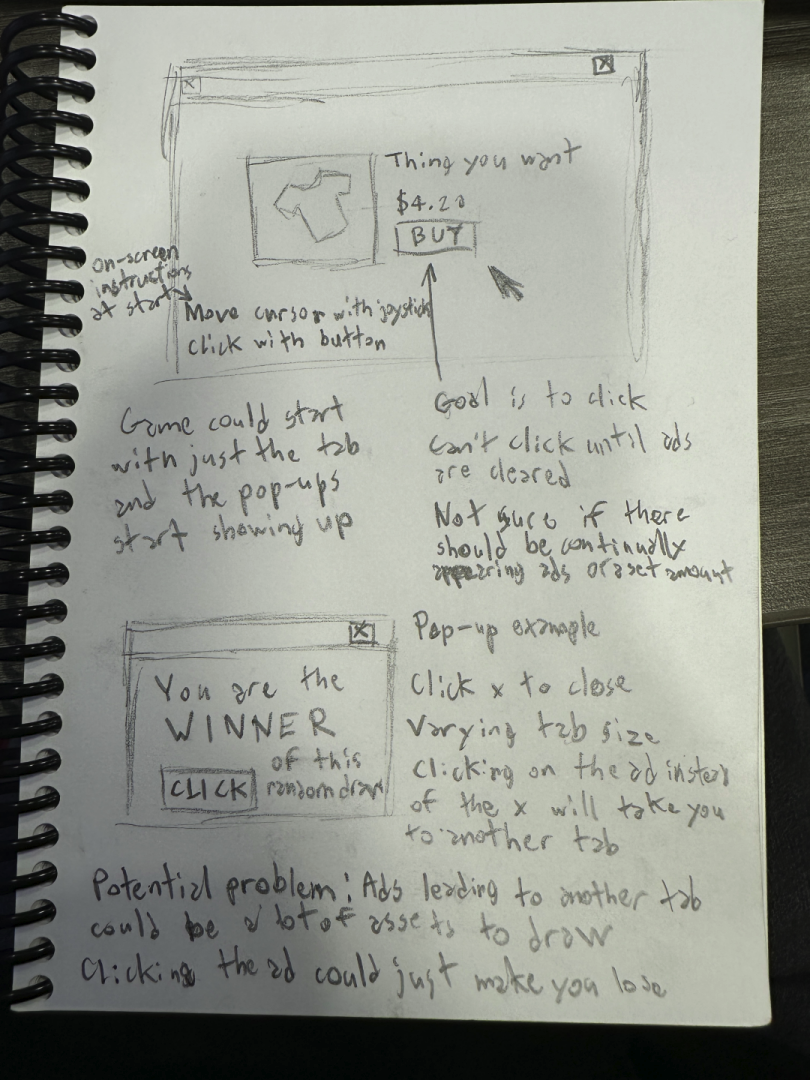 X
X
Thing you want
$4.20
BUY
on-screen
instructions
at start
Move cursor with joystick
click with button
Game could start
with just the tab
and the pop-ups
start showing up
Goal is to click
Can't click until ads
are cleared
Not sure if there
should be continually
appearing ads or a set amount
X
You are the
WINNER
of this
random draw
CLICK
Pop-up example
Click x to close
Varying tab size
Clicking on the ad instead
of the x will take you
to another tab
Potential problem: Ads leading to another tab
could be a lot of assets to draw
Clicking the ad could just make you lose